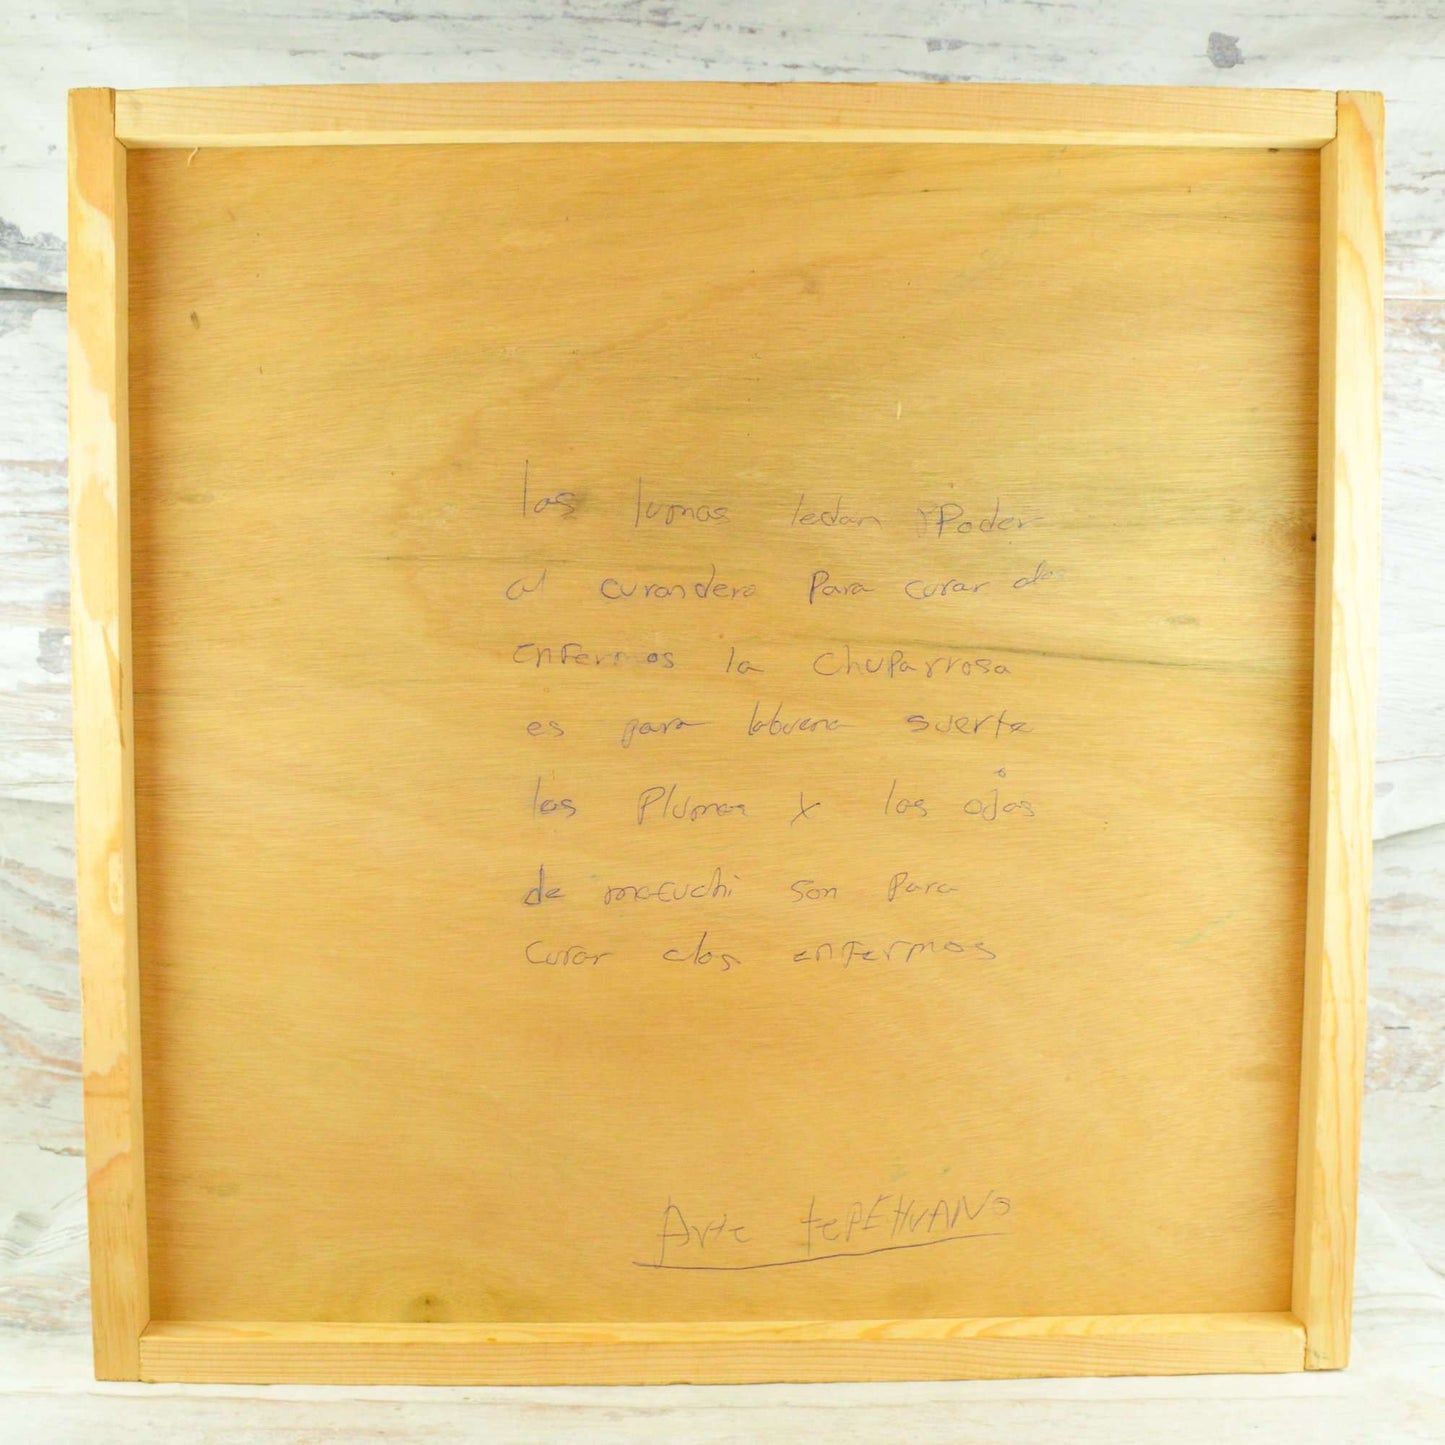 las lumas ledan Poder
al curandero Para curar alos
enFermos la chuParrosa
es para labuena suerte
las Plumas y los ojos
de matuchi son Para
curar alos enFermos
Arte tePEHUANO